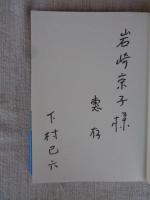 岩崎京子様
恵存
下村巳六